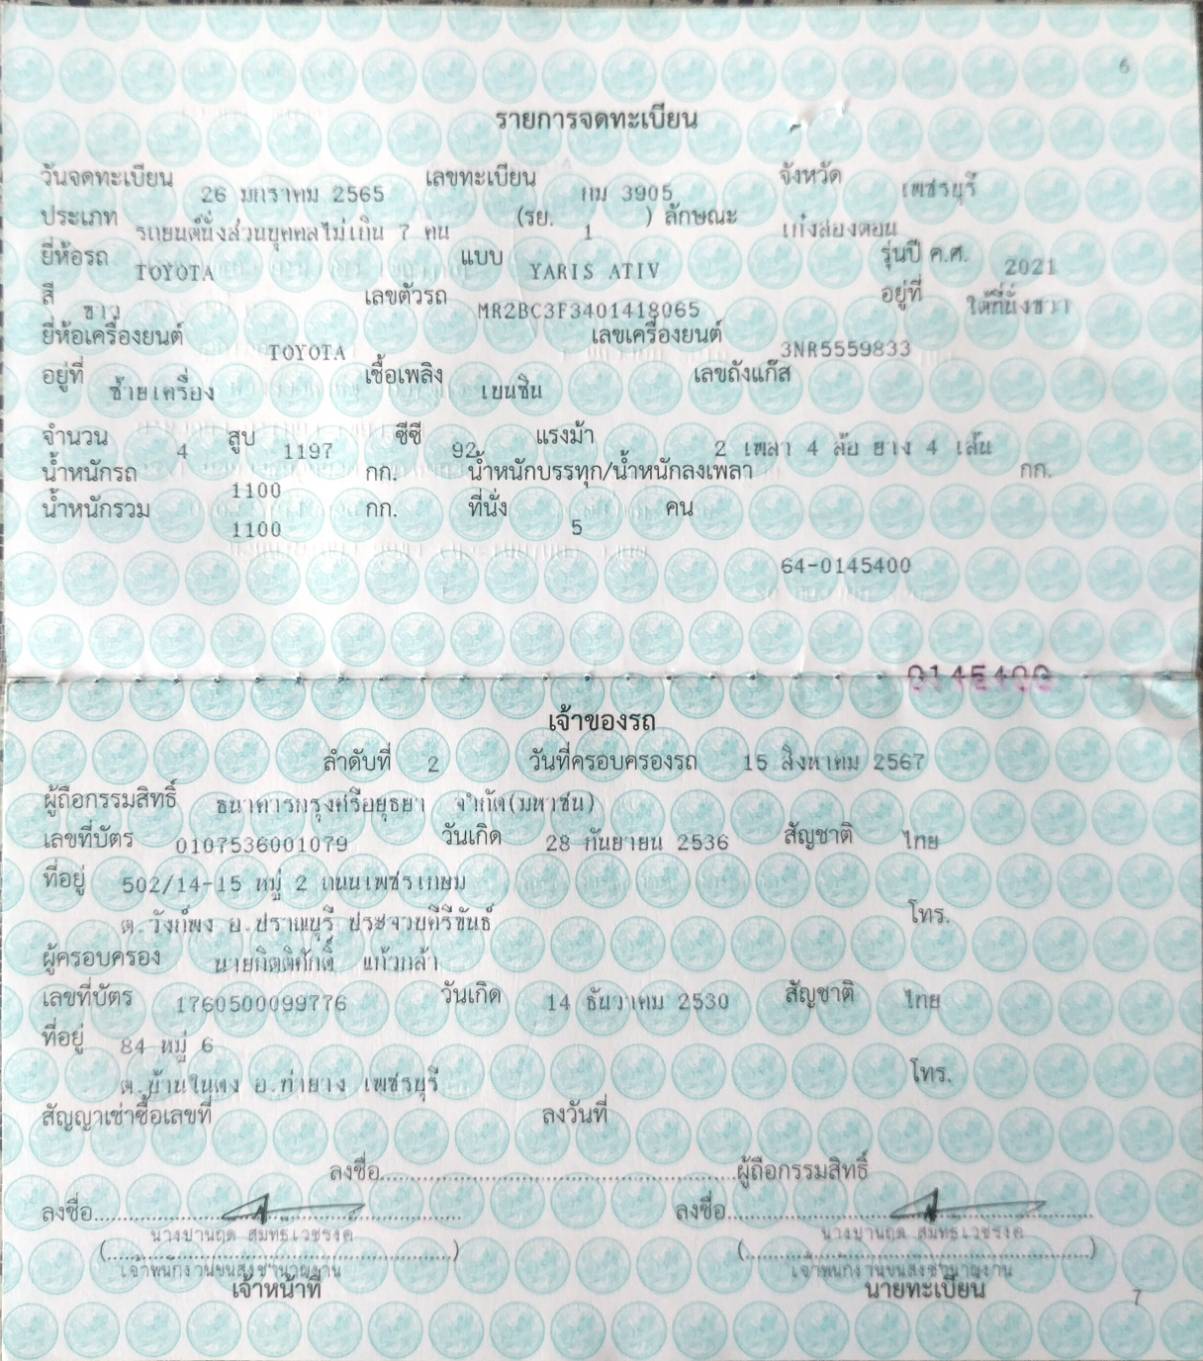 6
รายการจดทะเบียน
วันจดทะเบียน 26 มกราคม 2565 เลขทะเบียน กม 3905 จังหวัด เพชรบุรี
ประเภท รถยนต์นั่งส่วนบุคคลไม่เกิน 7 คน (รย. 1 ) ลักษณะ เก๋งสองตอน
ยี่ห้อรถ TOYOTA แบบ YARIS ATIV รุ่นปี ค.ศ. 2021
สี ขาว เลขตัวรถ MR2BC3F3401418065 อยู่ที่ ใต้ที่นั่งขวา
ยี่ห้อเครื่องยนต์ TOYOTA เลขเครื่องยนต์ 3NR5559833
อยู่ที่ ซ้ายเครื่อง เชื้อเพลิง เบนซิน เลขถังแก๊ส
จำนวน 4 สูบ 1197 ซีซี 92 แรงม้า 2 เพลา 4 ล้อ ยาง 4 เส้น
น้ำหนักรถ 1100 กก. น้ำหนักบรรทุก/น้ำหนักลงเพลา กก.
น้ำหนักรวม 1100 กก. ที่นั่ง 5 คน
64-0145400
0145400
เจ้าของรถ
ลำดับที่ 2 วันที่ครอบครองรถ 15 สิงหาคม 2567
ผู้ถือกรรมสิทธิ์ ธนาคารกรุงศรีอยุธยา จำกัด(มหาชน)
เลขที่บัตร 0107536001079 วันเกิด 28 กันยายน 2536 สัญชาติ ไทย
ที่อยู่ 502/14-15 หมู่ 2 ถนนเพชรเกษม
ต.วังก์พง อ.ปราณบุรี ประจวบคีรีขันธ์ โทร.
ผู้ครอบครอง นายกิตติศักดิ์ แก้วกล้า
เลขที่บัตร 1760500099776 วันเกิด 14 ธันวาคม 2530 สัญชาติ ไทย
ที่อยู่ 84 หมู่ 6
ต.บ้านในดง อ.ท่ายาง เพชรบุรี โทร.
สัญญาเช่าซื้อเลขที่ ลงวันที่
ลงชื่อ............................................ผู้ถือกรรมสิทธิ์
ลงชื่อ............................................ ลงชื่อ............................................
(............................................) (............................................)
เจ้าพนักงานขนส่งชำนาญงาน เจ้าพนักงานขนส่งชำนาญงาน
เจ้าหน้าที่ นายทะเบียน
7